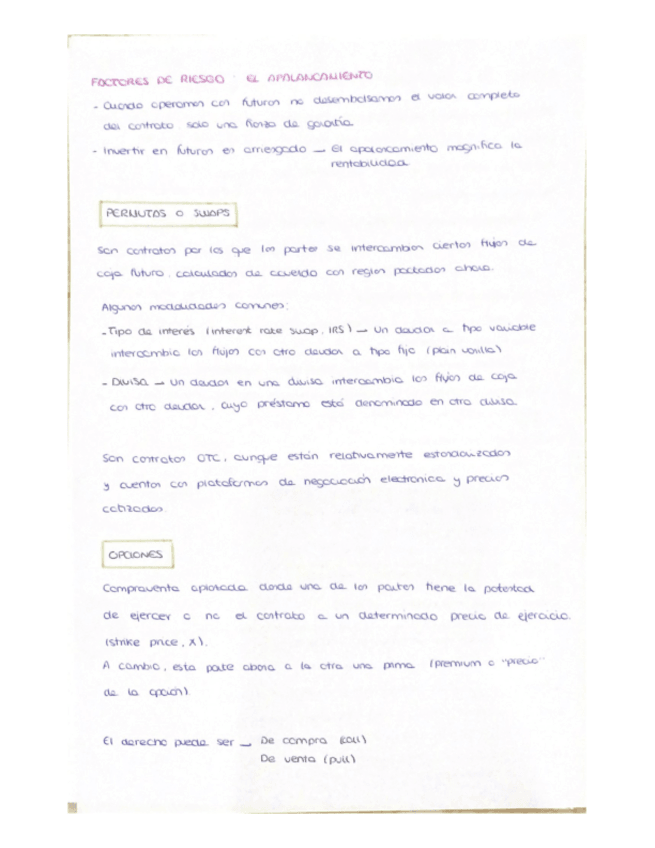 FACTORES DE RIESGO: EL APALANCAMIENTO
- Cuando operamos con futuros no desembolsamos el valor completo
del contrato, solo una fianza de garantía.
- Invertir en futuros es arriesgado → El apalancamiento magnifica la
rentabilidad.
PERMUTAS O SWAPS
Son contratos por los que las partes se intercambian ciertos flujos de
caja futuro, calculados de acuerdo con reglas pactadas ahora.
Algunas modalidades comunes:
- Tipo de interés (interest rate swap, IRS) → Un deudor a tipo variable
intercambia los flujos con otro deudor a tipo fijo (plan vanilla)
- Divisa → Un deudor en una divisa intercambia los flujos de caja
con otro deudor, cuyo préstamo está denominado en otra divisa.
Son contratos OTC, aunque están relativamente estandarizados
y cuentan con plataformas de negociación electrónica y precios
cotizados.
OPCIONES
Compraventa aplazada donde una de las partes tiene la potestad
de ejercer o no el contrato a un determinado precio de ejercicio.
(strike price, X).
A cambio, esta parte abona a la otra una prima (premium o "precio"
de la opción)
El derecho puede ser → De compra (call)
De venta (pull)